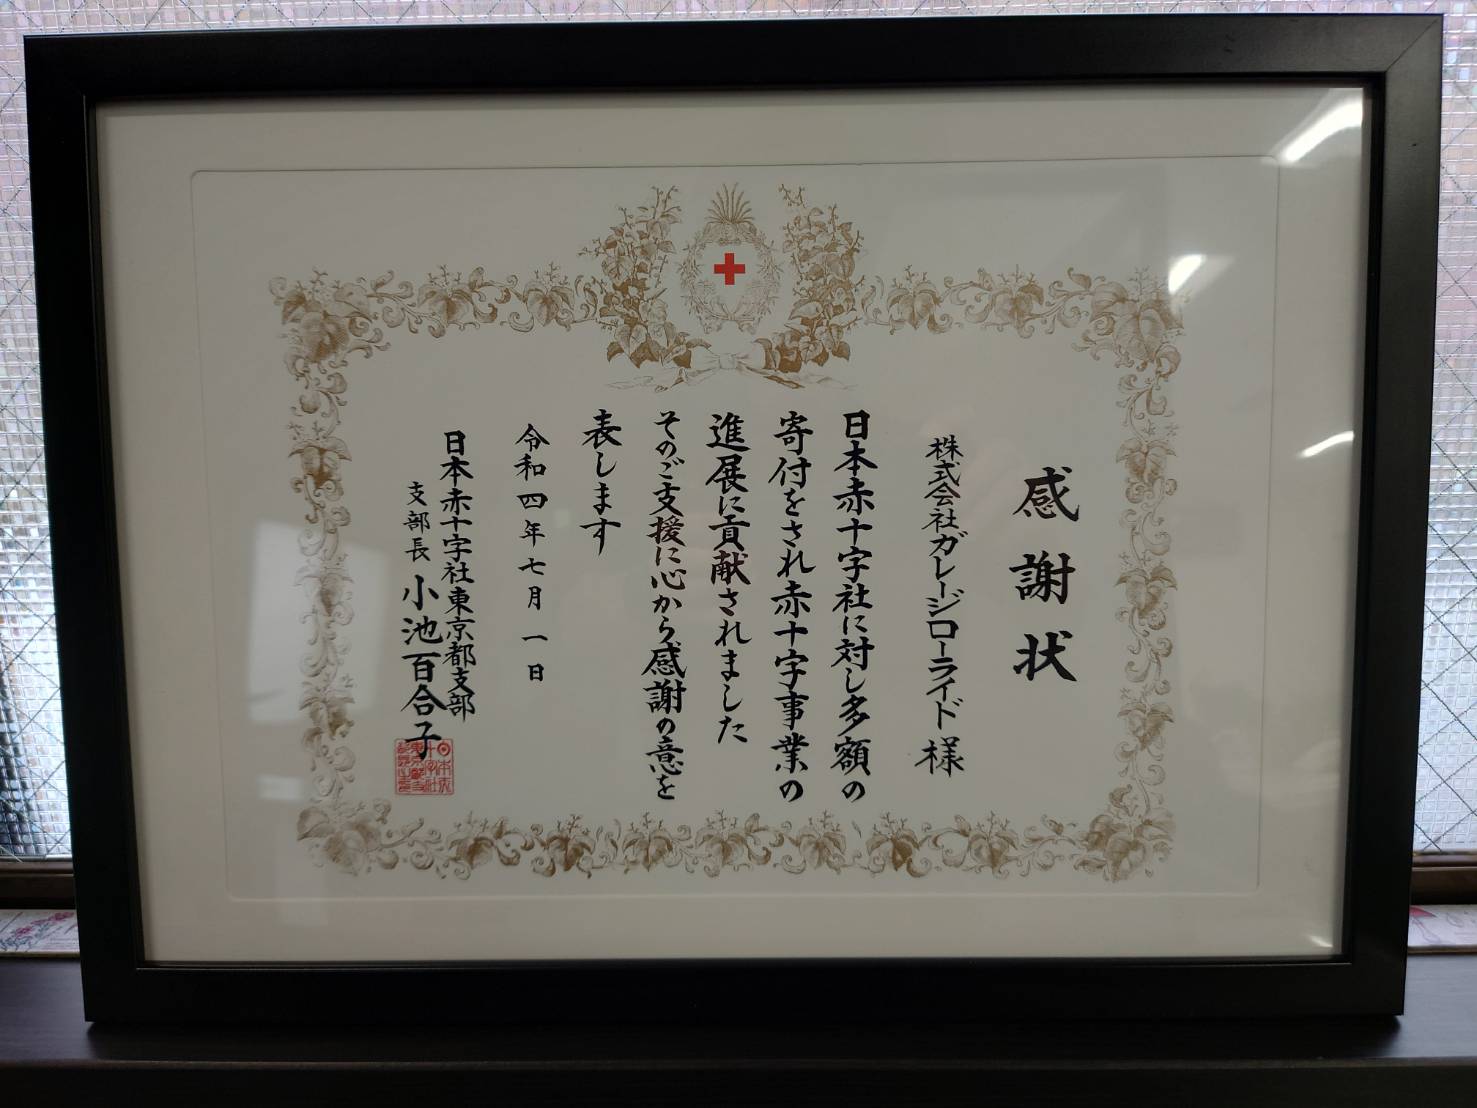 感謝状
株式会社ガレージローライド様
日本赤十字社に対し多額の
寄付をされ赤十字事業の
進展に貢献されました
そのご支援に心から感謝の意を
表します
令和四年七月一日
日本赤十字社東京都支部
支部長 小池百合子